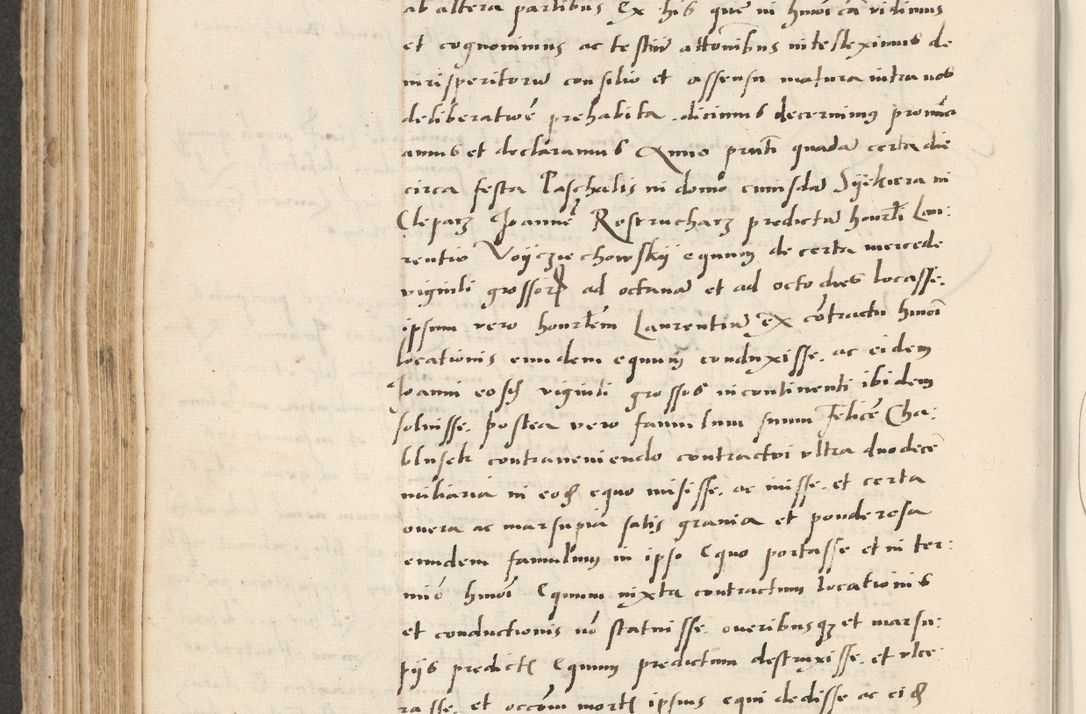 ab altera partibus Ex his que in hmoi cā vidimus
et cognovimus ac testiū attōnibus intelleximus de
iurisperitorū consilio et assensu matura intra nos
deliberatioē prehabita dicimus decernimus pronūci
amus et declaramus Anno pnti quadā certa die
circa festa Paschalis in domo cuiusdā Syekiera in
Cleparz Joannē Rostrucharz predictū honrli Lau:
rentio Voyczyechowsky equum de certa mercede
viginti grossor ad octavā et ad octo dies locasse.
ipsum vero honrlem Laurentiū ex cōtractu hmoi
locationis eundem equum conduxisse. ac eidem
Joanni eosd viginti grossos incontinenti ibidem
solvisse. postea vero famulum suum Felicē Cha:
blusek contraveniendo contractui ultra duodecē
miliaria in eod equo misisse. ac iuisse. et certa
onera ac marsupia satis gravia et ponderosa
eundem famulum in ipso Equo portasse et in ter:
mīo hmoi Equum iuxta contractum locationis
et conductionis nō statuisse. oneribusq et marsu:
piis predict Equum predictum destruxisse. et ulce
rasse. et occōm mort ipsius equi dedisse ac eid